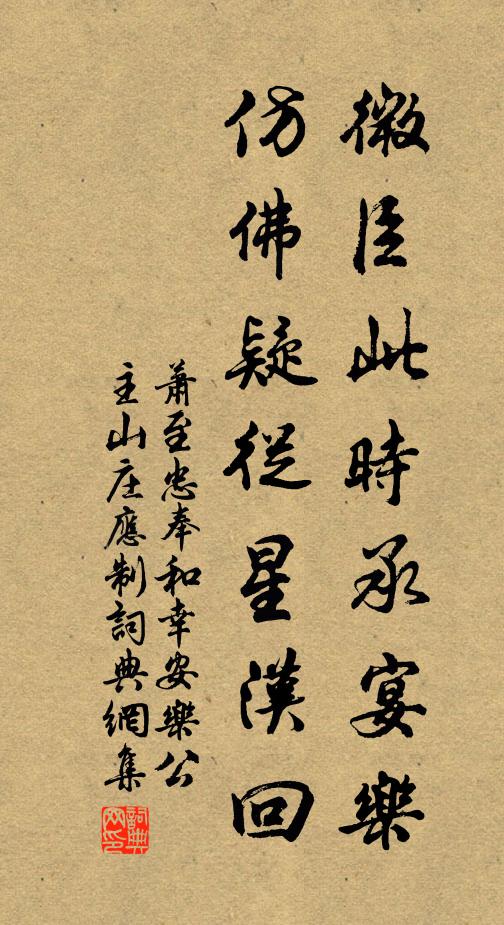 微臣此時承宴樂
仿佛疑從星漢回
蕭至忠奉和幸安樂公
主山庄應制詞典網集
詞典
网印